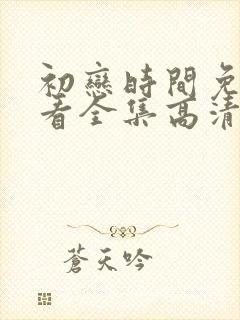 初戀時間免
看全集高清
蒼天吟